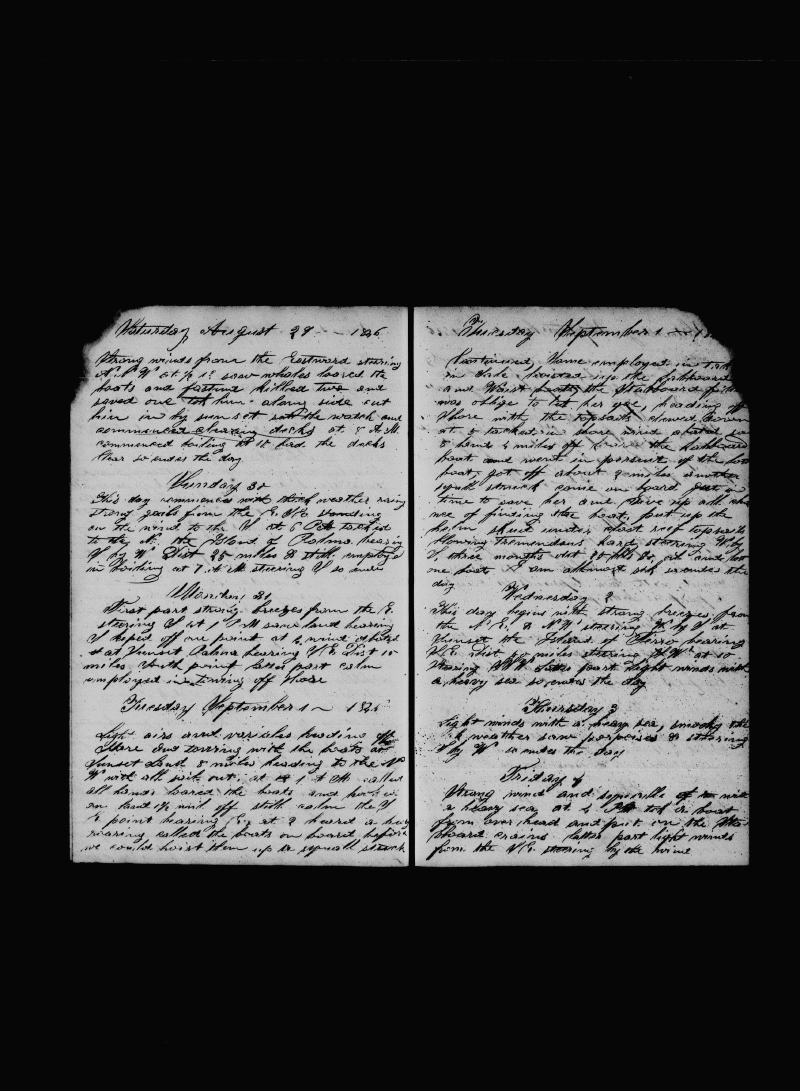 Saturday August 29 1846
Strong winds from the Eastward steering
saw whales lowed the
boats and fasture killed two and
saved one tok him along side cut
him in by sunset sett the watch and
commenced clearing decks at 5 A.M.
commenced boiling at 10 bird the decks
clear so endes the day
Sunday 30
This day commences with thick weather and
strong gails from the E.N.E standing
on the wind to the S at 6 PM tacked
to the N. the Island of Palma bearing
S by W Dist 25 miles & still employed
in boiling at 7 A M steering S so endes
Monday 31
First part strong breezes from the E.
steering S at 1 P M saw land bearing
S keped off one point at 2 wind abated
at Sunset Palma bearing S E Dist 15
miles South point later part calm
employed in towing off Shore
Tuesday September 1 1846
Light airs and variables heading off
Shore Our towering with the boats at
Sunset Land 8 miles heading to the N
W with all sail out; at 1 A M called
all hands lowed the boats and
on hand mil off still calm the S
E point bearing E; at 2 heard a heavy
roaring called the boats on board before
we could hoist them up a squall struck
Thuesday September 1
Continued, Some employed in
in hoisted up the larboard
and Waist boats the Starboard
was oblige to let her go, heading off
Shore with the topsails clewed down
at 5 tacked in shore wind abated
5 hands 4 miles off the larboard
boat and went in persuit of the lost
boat, got off about 2 miles another
squall struck came on board just in
time to save her and Give up all cha
nce of finding the boat, put up the
helm Skud under close reef topsails
blowing tremendous hard steering W by
S three months out 25 bbls oil and lost
one boat I am allmost sick so endes the
day
Wednesday 2
This day begins with strong breezes from
the N. E. & N steering W by S at
Sunset the Island of Ferro bearing
N.E. Dist 50 miles steering at 10
Wearing later part light winds with
a heavy sea so endes the day
Thursday 3
Light winds with a heavy sea, smoky
weather saw porpoises & steering
S by W so endes the day
Friday 4
Strong wind and with
a heavy sea at 4 PM tok a boat
from over head and put on the Sta
board crains later part light winds
from the N.E. steering by the wind